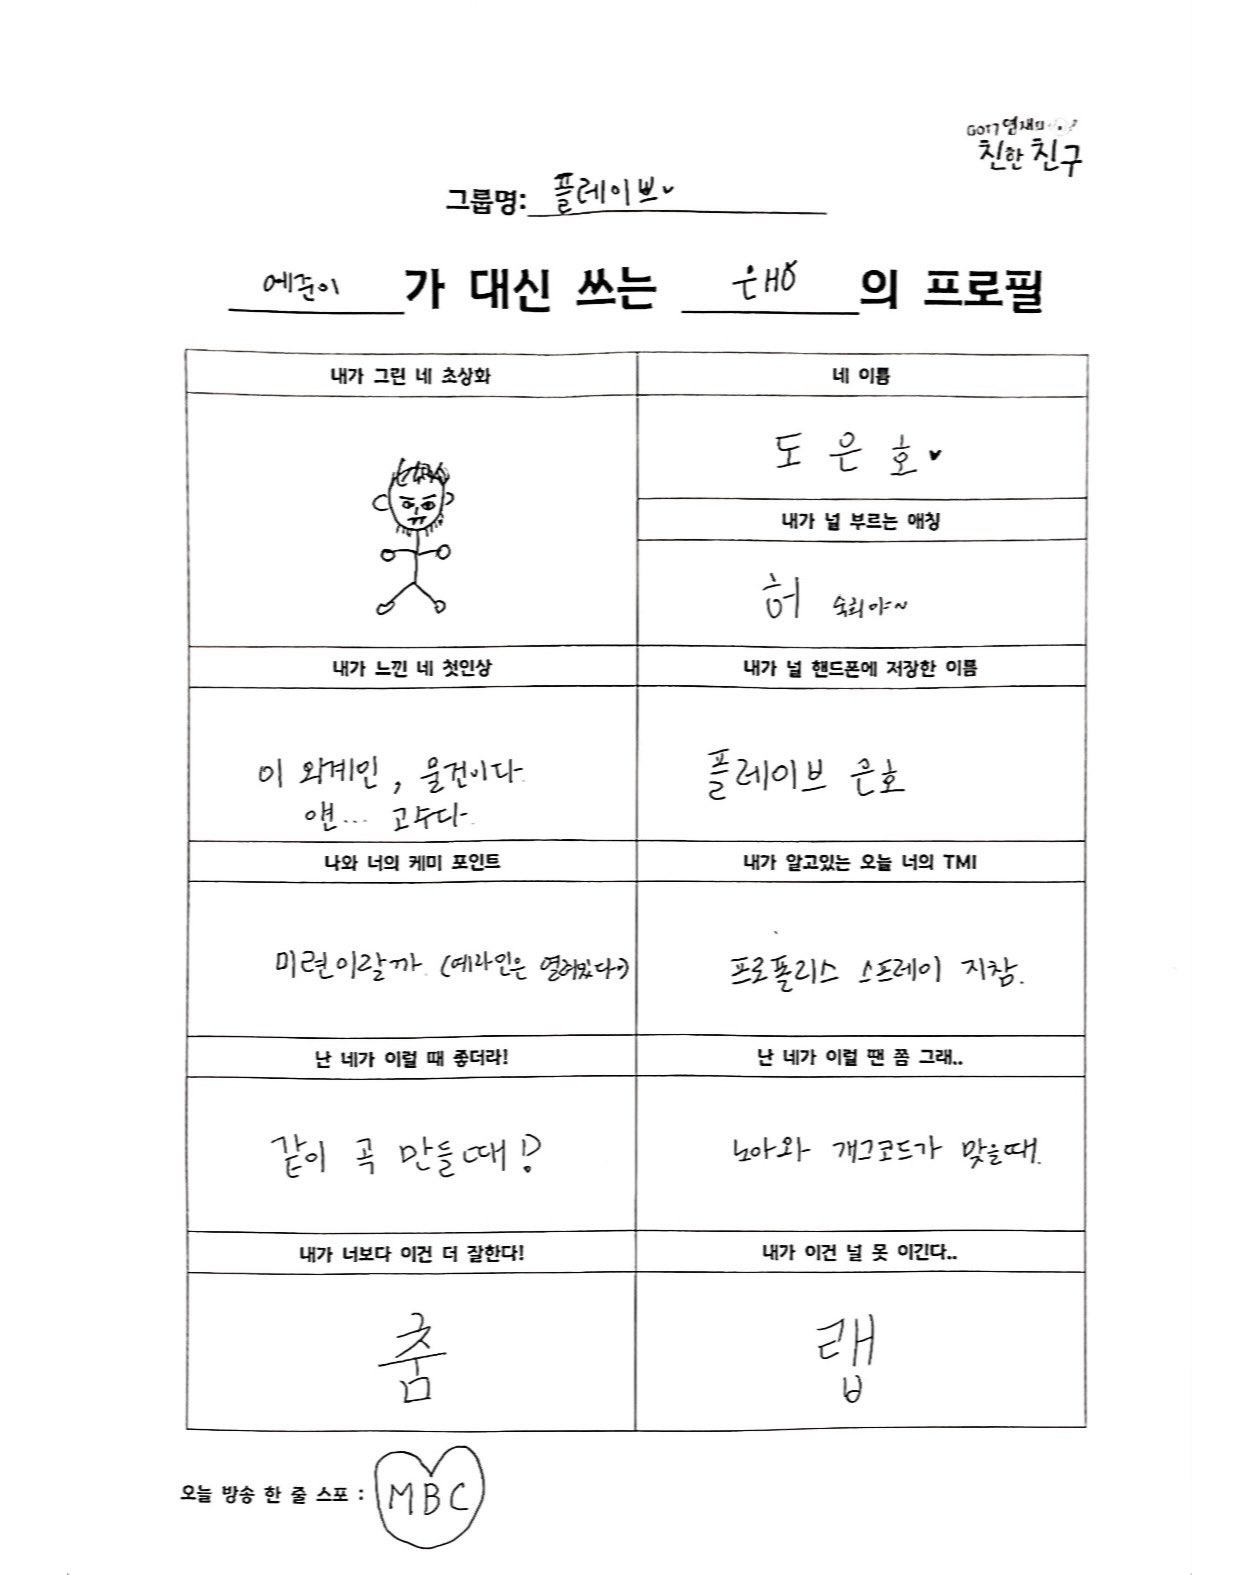 GOT7 영재의
친한친구
그룹명: 플레이브
예준이가 대신 쓰는 은호의 프로필
내가 그린 네 초상화
네 이름
도은호♥
내가 널 부르는 애칭
허 숙리야~
내가 느낀 네 첫인상
이 외계인, 물건이다.
얜... 고수다.
내가 널 핸드폰에 저장한 이름
플레이브 은호
나와 너의 케미 포인트
미련이랄까. (예라인은 열려있다?)
내가 알고있는 오늘 너의 TMI
프로폴리스 스프레이 지참.
난 네가 이럴 때 좋더라!
같이 곡 만들때!?
난 네가 이럴 땐 쫌 그래..
노아와 개그코드가 맞을때.
내가 너보다 이건 더 잘한다!
춤
내가 이건 널 못 이긴다..
랩
오늘 방송 한 줄 스포 : MBC